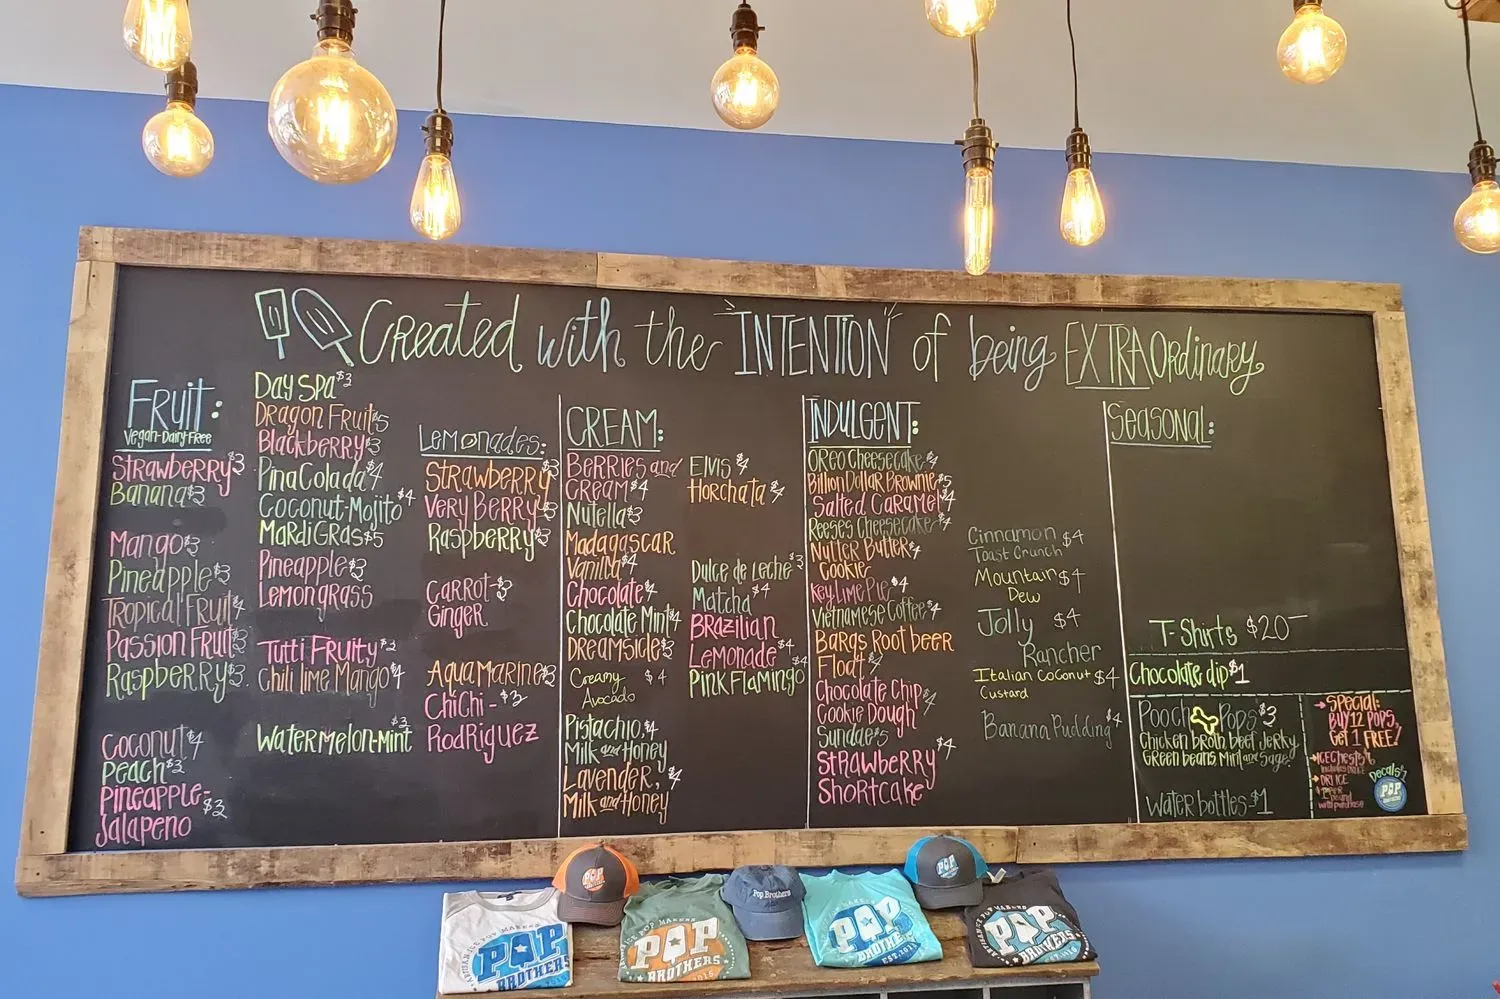 Created with the "INTENTION" of being EXTRAOrdinary
FRUIT:
Vegan-Dairy-Free
STRAWBERRY $3
BANANA $3
MANGO $3
Pineapple $3
TROPICAL FRUIT $4
PASSION FRUIT $3
RASPBERRY $3
COCONUT $4
PEACH $3
PINEAPPLE-
JALAPENO $3
DAY SPA $3
DRAGON FRUIT $5
Blackberry $3
PINA COLADA $4
COCONUT-MOJITO $4
MARDI GRAS $5
Pineapple $3
Lemongrass
Tutti Fruity $3
Chili lime Mango $4
WATERMELON-MINT $3
Lemonades:
STRAWBERRY $3
VERY BERRY $3
RASPBERRY $3
CARROT- $3
GINGER
AQUA MARINE $3
CHICHI- $3
RODRIGUEZ
CREAM:
BERRIES and
CREAM $4
NUTELLA $3
MADAGASCAR
VANILLA $4
CHOCOLATE $4
CHOCOLATE MINT $4
DREAMSICLE $3
Creamy $4
Avocado
PISTACHIO, $4
Milk and Honey
LAVENDER, $4
Milk and Honey
ELVIS $4
HORCHATA $4
DULCE de LECHE $3
MATCHA $4
BRAZILIAN
LEMONADE $4
PINK FLAMINGO $4
INDULGENT:
OREO CHEESECAKE $4
Billion Dollar Brownie $5
SALTED CARAMEL $4
REESES CHEESECAKE $4
NUTTER BUTTER $4
COOKIE
KEY LIME PIE $4
VIETNAMESE COFFEE $4
BARQS ROOT BEER
FLOAT $4
CHOCOLATE CHIP $4
COOKIE DOUGH
SUNDAE $5
STRAWBERRY $4
SHORTCAKE
Cinnamon $4
Toast Crunch
Mountain $4
Dew
Jolly $4
Rancher
Italian Coconut $4
Custard
Banana Pudding $4
SEASONAL:
T-SHIRTS $20
Chocolate dip $1
POOCH POPS $3
Chicken broth beef Jerky
Green beans Mint and Sage
WATER bottles $1
SPECIAL:
BUY 12 POPS,
GET 1 FREE!
DRY ICE
with purchase
Decals $1
POP
POP
BROTHERS
POP
BROTHERS
Pop Brothers
POP
BROTHERS
EST. 2015
POP
POP
BROTHERS